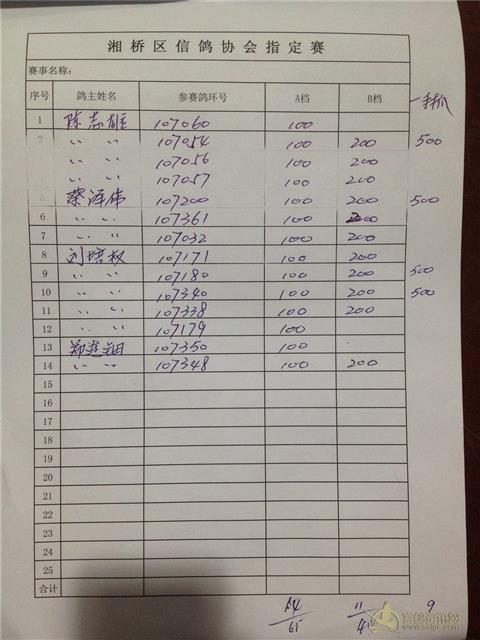 湘桥区信鸽协会指定赛
赛事名称：
序号 鸽主姓名 参赛鸽环号 A档 B档 一手抓
1 陈志雄 107060 100
2 〃 〃 107054 100 200 500
〃 〃 107056 100 200
〃 〃 107057 100 200
5 蔡泽伟 107200 100 200 500
6 〃 〃 107361 100 200
7 〃 〃 107032 100 200
8 刘培权 107171 100 200
9 〃 〃 107180 100 200 500
10 〃 〃 107340 100 200 500
11 〃 〃 107338 100 200
12 〃 〃 107179 100
13 107350 100
14 〃 〃 107348 100 200
15
16
17
18
19
20
21
22
23
24
25
合计
11 9
65 4
赛鸽资讯网